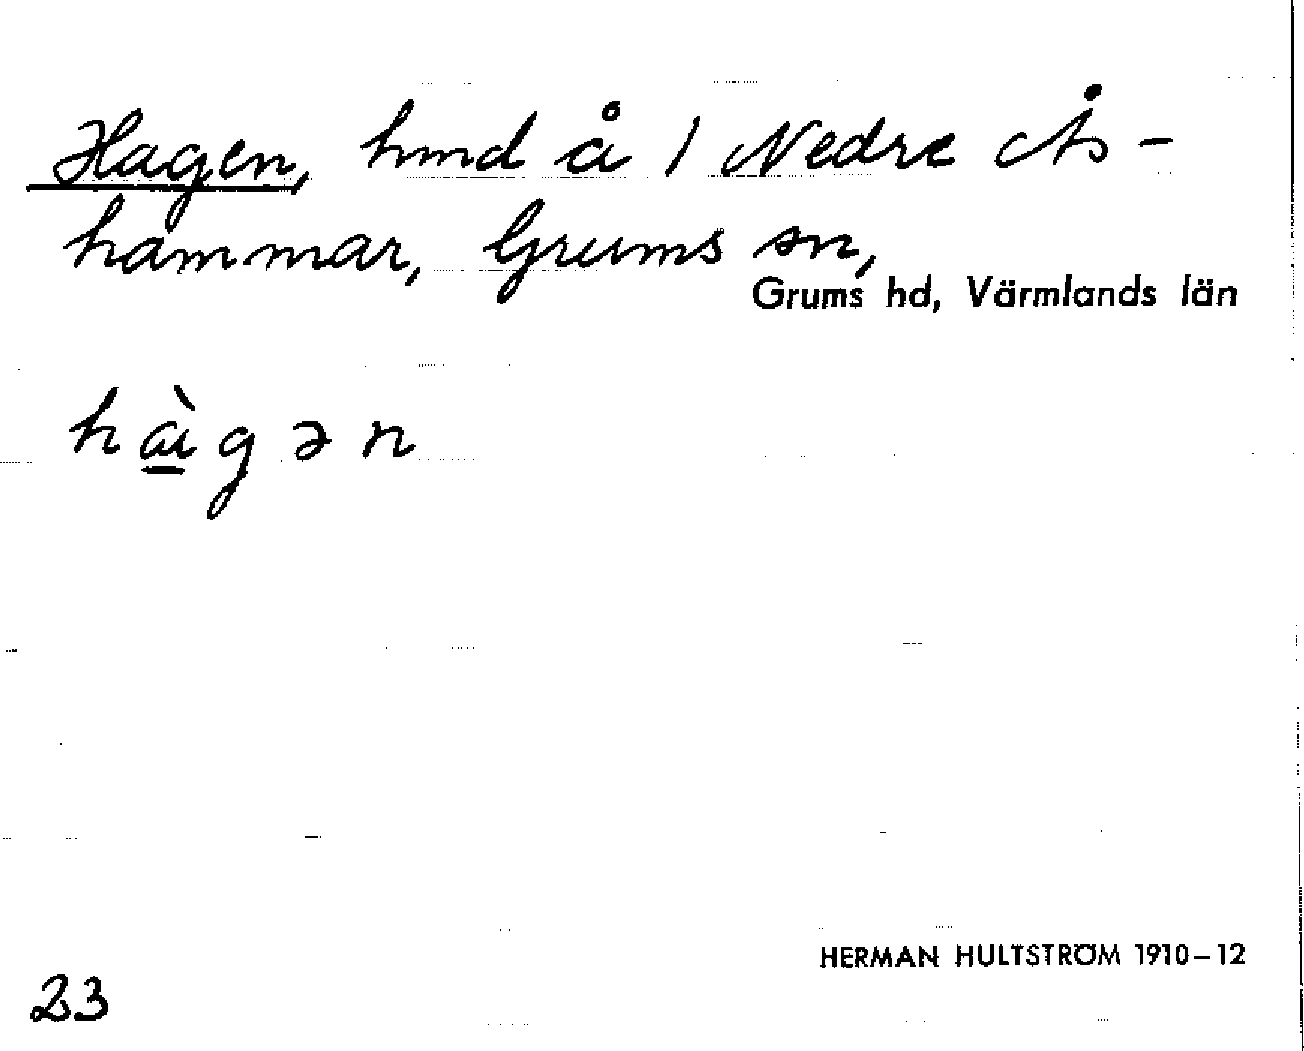 Hagen, hmd å 1 Nedre Ås-
hammar, Grums sn,
Grums hd, Värmlands län
hà̱gən
HERMAN HULTSTRÖM 1910–12
23